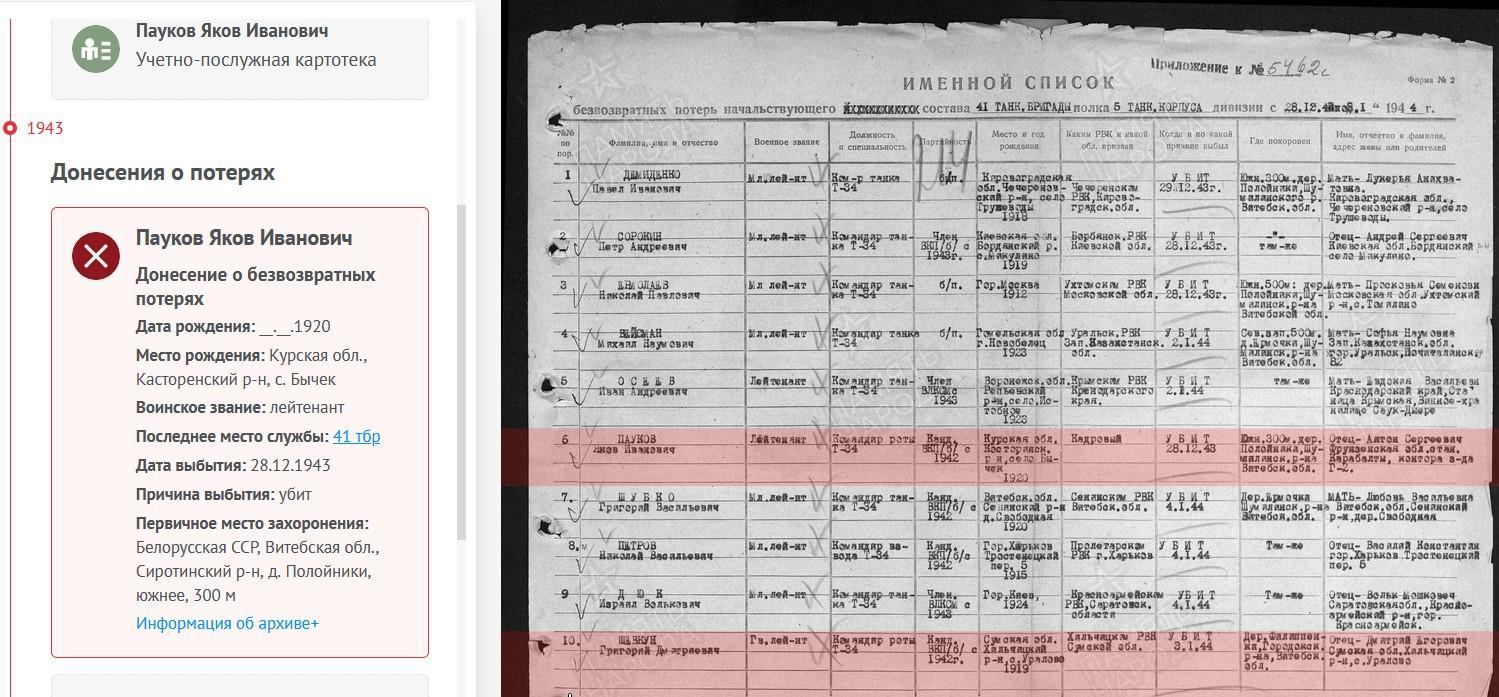 Пауков Яков Иванович
Учетно-послужная картотека
1943
Донесения о потерях
Пауков Яков Иванович
Донесение о безвозвратных
потерях
Дата рождения: __.__.1920
Место рождения: Курская обл.,
Касторенский р-н, с. Бычек
Воинское звание: лейтенант
Последнее место службы: 41 тбр
Дата выбытия: 28.12.1943
Причина выбытия: убит
Первичное место захоронения:
Белорусская ССР, Витебская обл.,
Сиротинский р-н, д. Полойники,
южнее, 300 м
Информация об архиве+
Приложение к № 5462с
ИМЕННОЙ СПИСОК
Форма № 2
безвозвратных потерь начальствующего состава 41 ТАНК.БРИГАДЫ полка 5 ТАНК.КОРПУСА дивизии с 28.12. 194 4 г.
№№ по пор.
Фамилия, имя и отчество
Военное звание
Должность и специальность
Партийность
Место и год рождения
Каким РВК и какой обл. призван
Когда и по какой причине выбыл
Где похоронен
Имя, отчество и фамилия, адрес жены или родителей
1 ДЕМИДЕНКО Павел Иванович
Мл.лей-нт
Ком-р танка Т-34
б/п.
Кировоградская обл. село Трушеводы 1918
РВК,Кирово-градск.обл.
УБИТ 29.12.43г.
Южн.300м.дер. Полойники, Витебск.обл.
Мать- Лукерья Кировоградская обл.,
2 СОРОКИН Петр Андреевич
Мл.лей-нт
Командир тан-ка Т-34
Член ВКП/б/ с 1943г.
Киевская обл. с.Микулино 1919
РВК Киевской обл.
УБИТ 28.12.43г.
-"- там-же
Отец- Андрей Сергеевич Киевская обл. село Микулино.
3 Николай Павлович
Мл лей-нт
Командир тан-ка Т-34
б/п.
Гор.Москва 1912
Ухтомским РВК Московской обл.
УБИТ 28.12.43г.
Южн.500м: дер. Полойники, Витебской обл.
Мать- Московская обл.Ухтомский р-н,с.Томилино
4. ВЕЙСМАН Михаил Наумович
Мл.лей-нт
Командир танка Т-34
б/п.
Гомельская обл г.Новобелец 1923
Уральск.РВК Зап.Казахстанск. обл.
УБИТ 2.1.44
Сев.зап.500м. д.Ермочки, Витебск.обл.
Мать- Софья Наумовна Зап.Казахстанск.обл. гор.Уральск, 82
5 ОСЕЕВ Иван Андреевич
Лейтенант
Командир тан-ка Т-34
Член ВЛКСМ с 1943
Воронежск.обл. Репьевский р-н,село, 1923
Крымским РВК Краснодарского края.
УБИТ 2.1.44
там-же
Мать- Евдокия Васильевн Краснодарский край,Ста ница Крымская,
6 ПАУКОВ Яков Иванович
Лейтенант
Командир роты Т-34
Канд. ВКП/б/ с 1942
Курская обл. Касторинск. р-н,село Бы-чек 1920
Кадровый
УБИТ 28.12.43
Южн.300м.дер. Полойники, Витебск.обл.
Отец- Антон Сергеевич Фрунзенская обл.стан. Карабалты, контора з-да Г-2.
7. ШУБКО Григорий Васильевич
Мл.лей-нт
Командир тан-ка Т-34
Канд. ВКП/б/ с 1942
Витебск.обл. Сенинский р-н д.Свободная 1920
Сенинским РВК Витебск.обл.
УБИТ 4.1.44
Дер.Ермочки Витебск.обл.
МАТЬ- Любовь Васильевна Витебск.обл.Сенинский р-н,дер.Свободная
8. ПЕТРОВ Николай Васильевич
Мл.лей-нт
Командир вз-вода Т-34
Канд. ВКП/б/с 1942
Гор.Харьков Тростенецкий пер. 5 1915
Пролетарским РВК г.Харьков
УБИТ 4.1.44
Там-же
Отец- Василий Константин гор.Харьков Тростенецкий пер. 5
9 ДЮК Израил Волькович
Мл.лей-нт
Командир тан-ка Т-34
Член. ВЛКСМ с 1943
Гор.Киев, 1924
Красноармейским РВК,Саратовск. области
УБИТ 4.1.44
Там-же
Отец- Вольк Мошкович Саратовскаяобл.,Красно-армейский р-н,гор. Красноармейск.
10. ШЕВКУН Григорий Дмитриевич
Гв.лей-нт
Командир роты Т-34
Канд. ВКП/б/ с 1942г.
Сумская обл. Хильчацкий р-н,с.Уралово 1919
Хильчацким РВК Сумской обл.
УБИТ 3.1.44
Витебск. обл.
Отец- Дмитрий Егорович Сумская обл.Хильчацкий р-н,с.Уралово